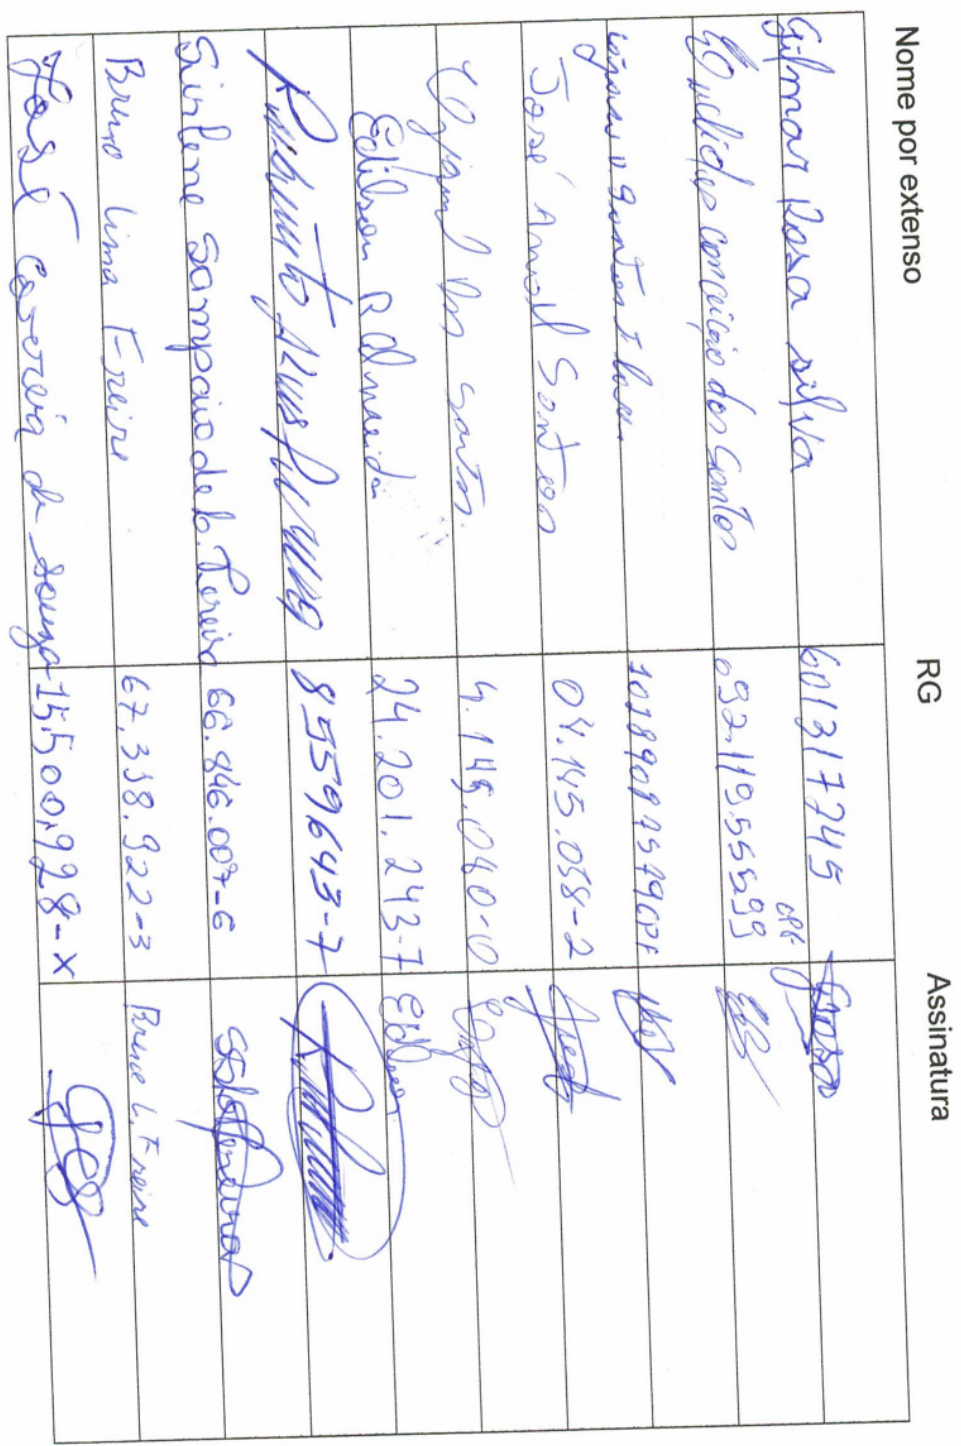 Nome por extenso RG Assinatura
Gilmar Rosa silva 601317745
Euclides conceição dos Santos 092.119.555.99 CPF
10189091579 CPF
José Amol Santos 04.145.038-2
dos santos. 4.149.040-0
Edilson R Almeida 24.201.243-7 Edilson
8559643-7
Sirlene Sampaio de L. Pereira 66.846.007-6
Bruno Lima Freire 67.338.922-3 Bruno L. Freire
José Correia de Souza 15.500.928-X